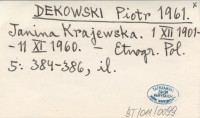 DEKOWSKI Piotr 1961.
Janina Krajewska. 1 XII 1901-
- 11 XI 1960. — Etnogr. Pol.
5: 384-386, il.